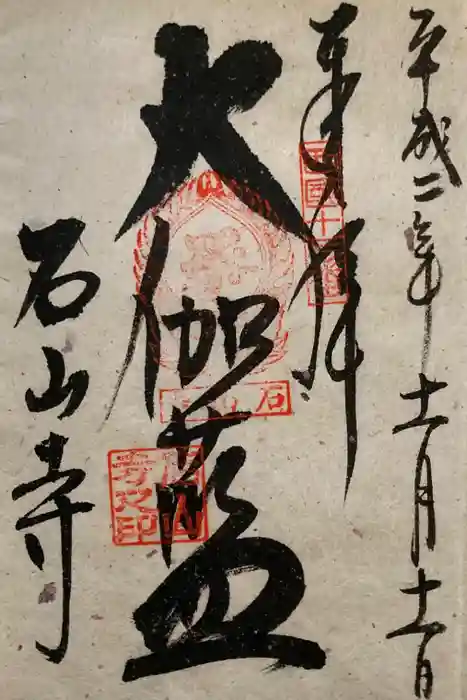 平成二年十一月十一日
奉拝
西国十三番
大伽藍
石山寺
石山寺之印
石山寺